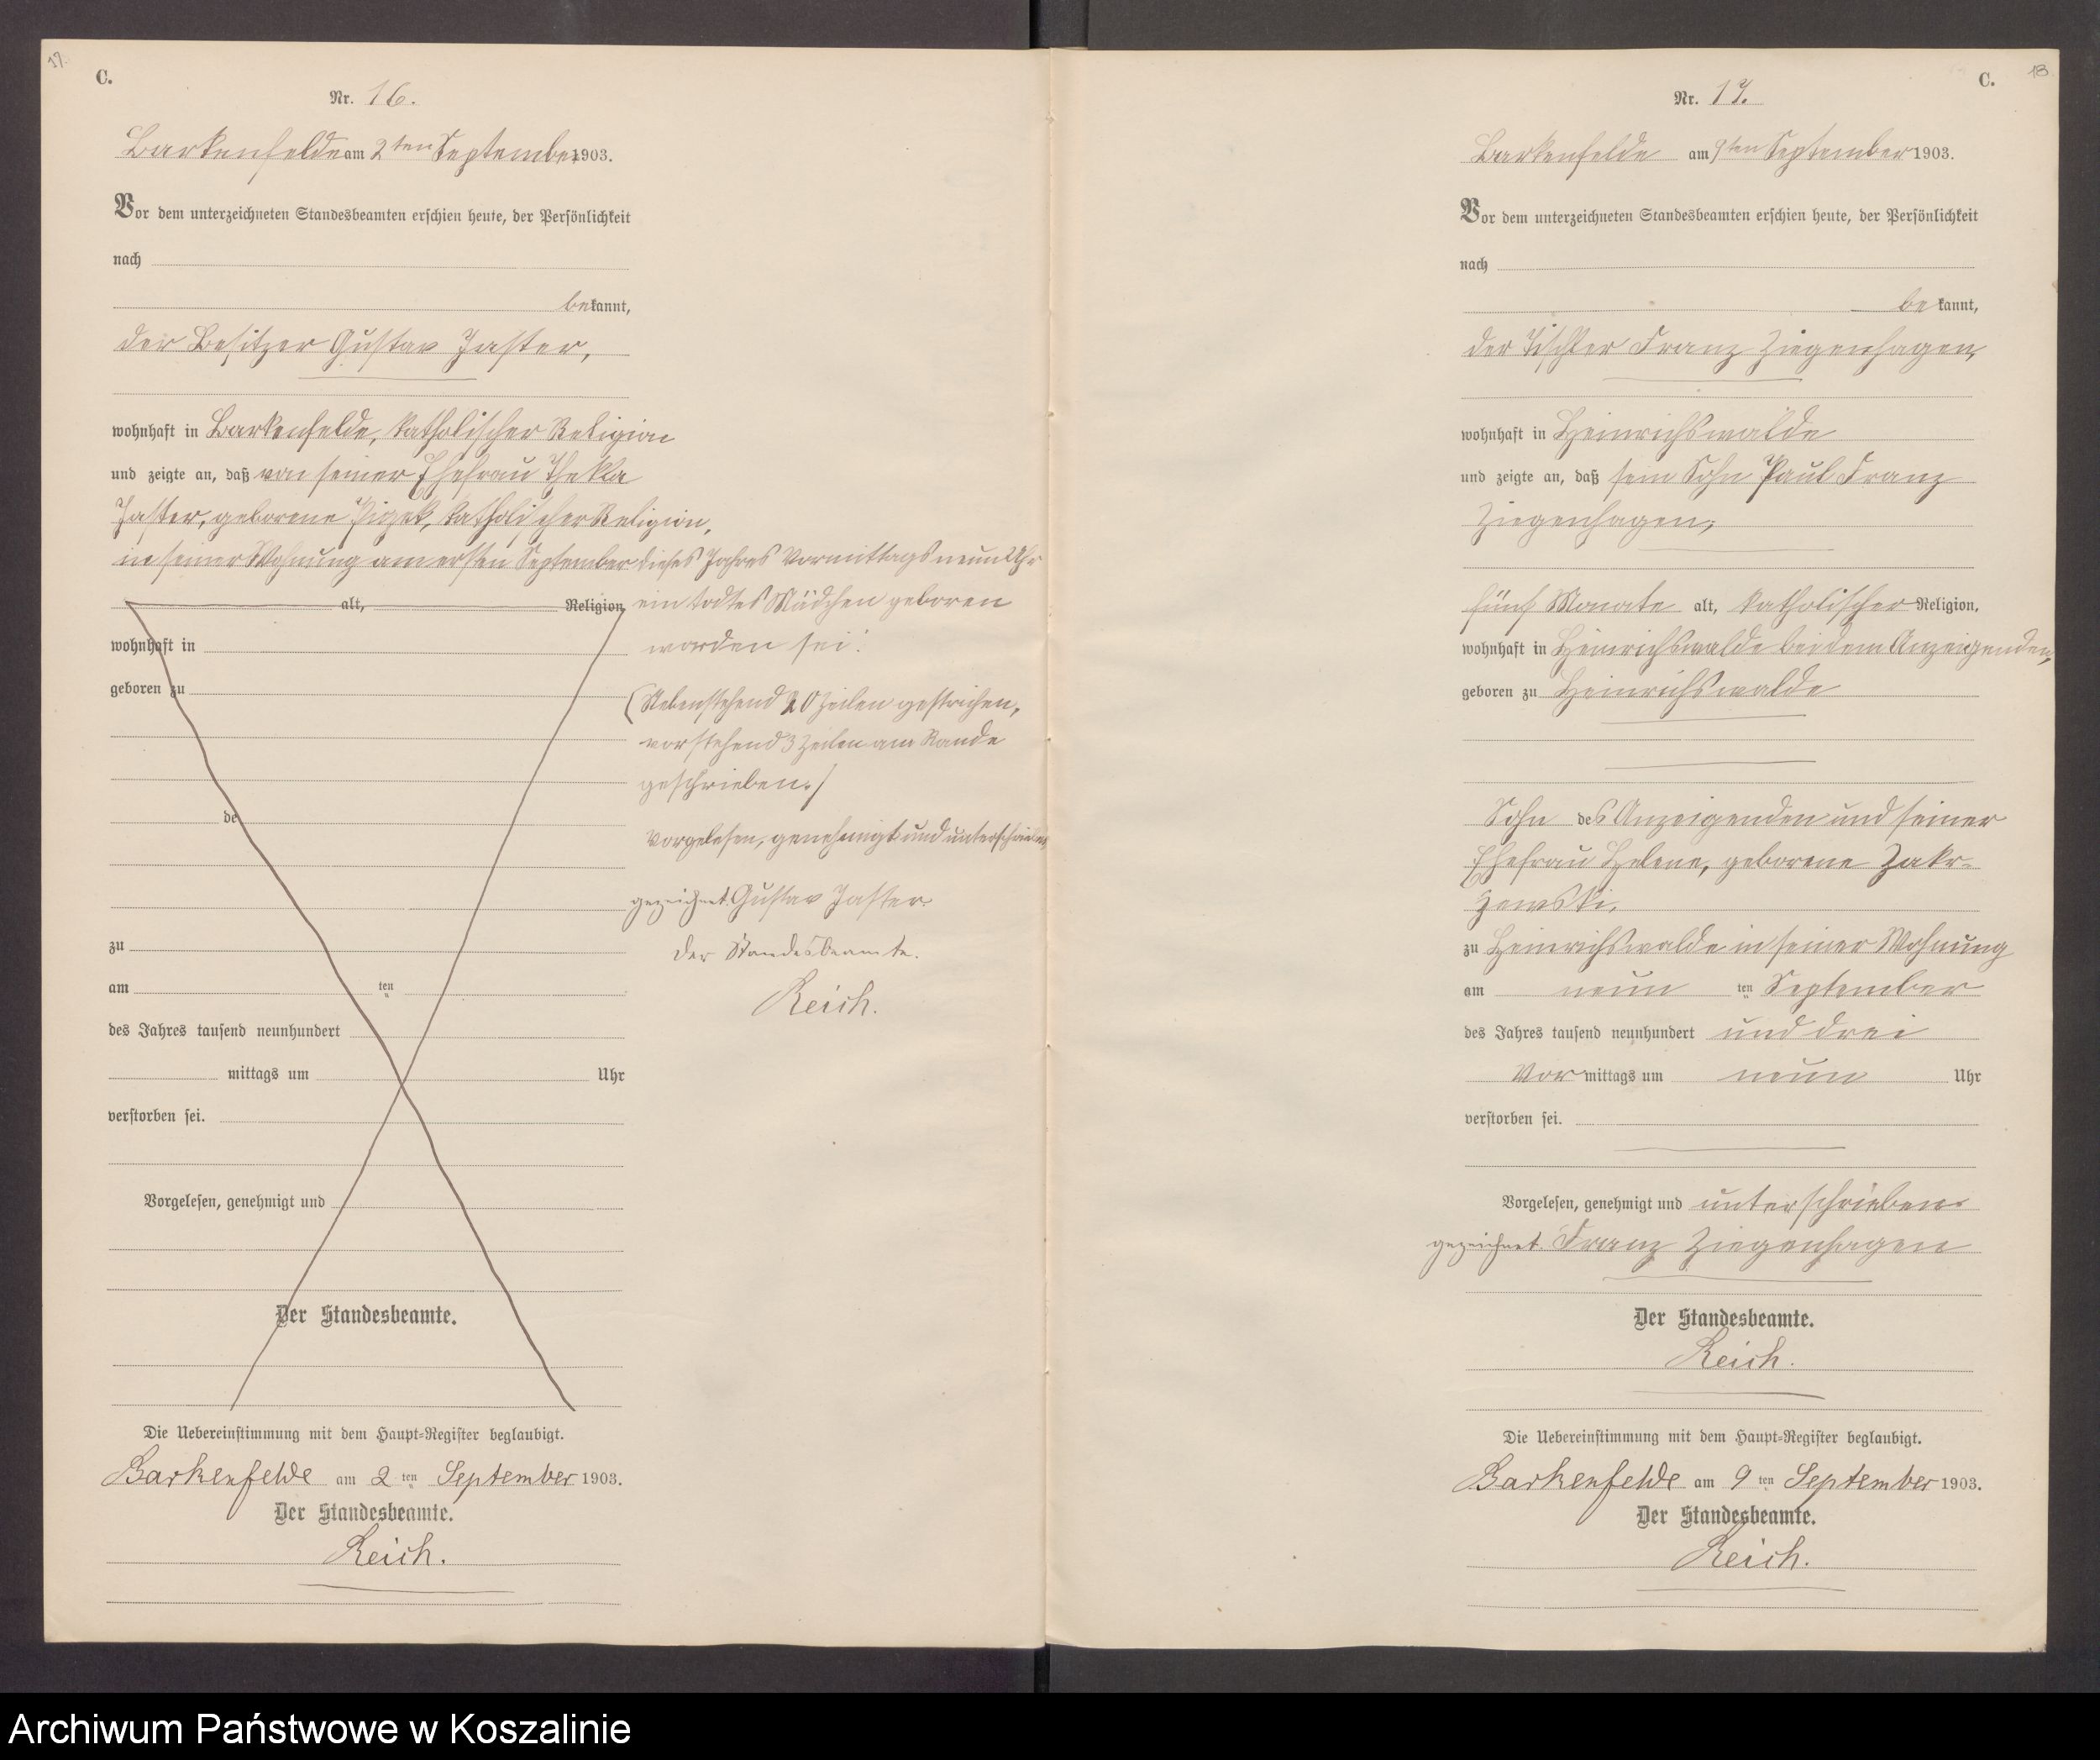 17.
C.
Nr. 16.
Barkenfelde am 2ten September 1903.
Vor dem unterzeichneten Standesbeamten erschien heute, der Persönlichkeit
nach
bekannt,
der Besitzer Gustav Jaster,
wohnhaft in Barkenfelde, katholischer Religion
und zeigte an, daß von seiner Ehefrau Thekla
Jaster, geborene katholischer Religion,
in seiner Wohnung am ersten September dieses Jahres Vormittags neun Uhr
alt, Religion ein todtes Mädchen geboren
wohnhaft in worden sei.
geboren zu
(Nebenstehend 20 Zeilen gestrichen,
vorstehend 3 Zeilen am Rande
geschrieben.)
de
Vorgelesen, genehmigt und unterschrieben
gezeichnet. Gustav Jaster.
zu
Der Standesbeamte.
am ten
Reich.
des Jahres tausend neunhundert
mittags um Uhr
verstorben sei.
Vorgelesen, genehmigt und
Der Standesbeamte.
Die Uebereinstimmung mit dem Haupt-Register beglaubigt.
Barkenfelde am 2 ten September 1903.
Der Standesbeamte.
Reich.
18
C.
Nr. 17.
Barkenfelde am 9ten September 1903.
Vor dem unterzeichneten Standesbeamten erschien heute, der Persönlichkeit
nach
bekannt,
der Tischler Franz Ziegenhagen,
wohnhaft in Heinrichswalde
und zeigte an, daß sein Sohn Paul Franz
Ziegenhagen,
fünf Monate alt, katholischer Religion,
wohnhaft in Heinrichswalde bei dem Anzeigenden,
geboren zu Heinrichswalde
Sohn des Anzeigenden und seiner
Ehefrau Helene, geborene Zakr-
zewski,
zu Heinrichswalde in seiner Wohnung
am neun ten September
des Jahres tausend neunhundert und drei
Vormittags um neun Uhr
verstorben sei.
Vorgelesen, genehmigt und unterschrieben
gezeichnet. Franz Ziegenhagen
Der Standesbeamte.
Reich.
Die Uebereinstimmung mit dem Haupt-Register beglaubigt.
Barkenfelde am 9 ten September 1903.
Der Standesbeamte.
Reich.
Archiwum Państwowe w Koszalinie